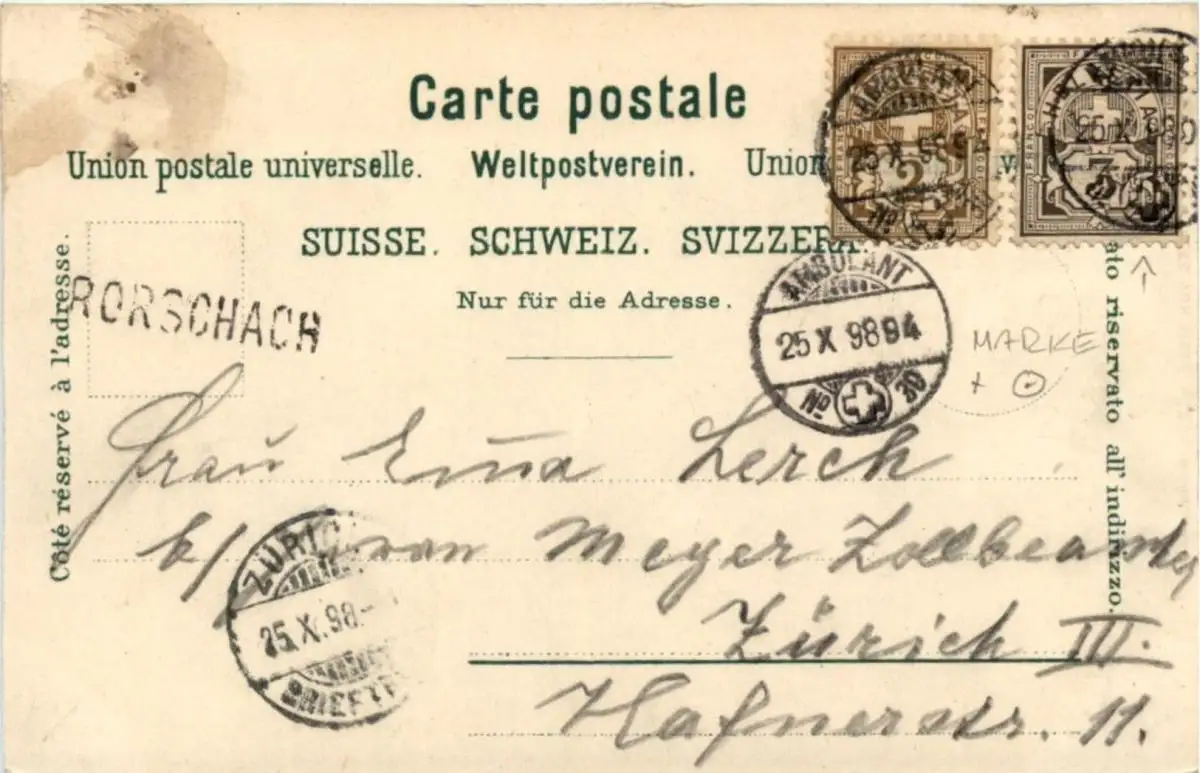 Carte postale
Union postale universelle. Weltpostverein. Union
SUISSE. SCHWEIZ. SVIZZERA.
Nur für die Adresse.
Côté réservé à l'adresse.
ato riservato all'indirizzo.
RORSCHACH
AMBULANT
25 X 98 94
No 30
AMBULANT
25 X 98 94
No
2
FRANCO
3
25 X 98
MARKE
+
Frau Emma Lerch
b/ Herrn Meyer Zollbeamter
Zürich III.
Hafnerstr. 11.
ZÜRIC
25.X.98-
BRIEFTR